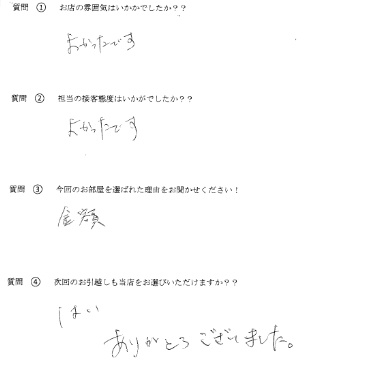 質問 ① お店の雰囲気はいかかでしたか??
よかったです
質問 ② 担当の接客態度はいかがでしたか??
よかったです
質問 ③ 今回のお部屋を選ばれた理由をお聞かせください!
金額
質問 ④ 次回のお引越しも当店をお選びいただけますか??
はい
ありがとうございました。